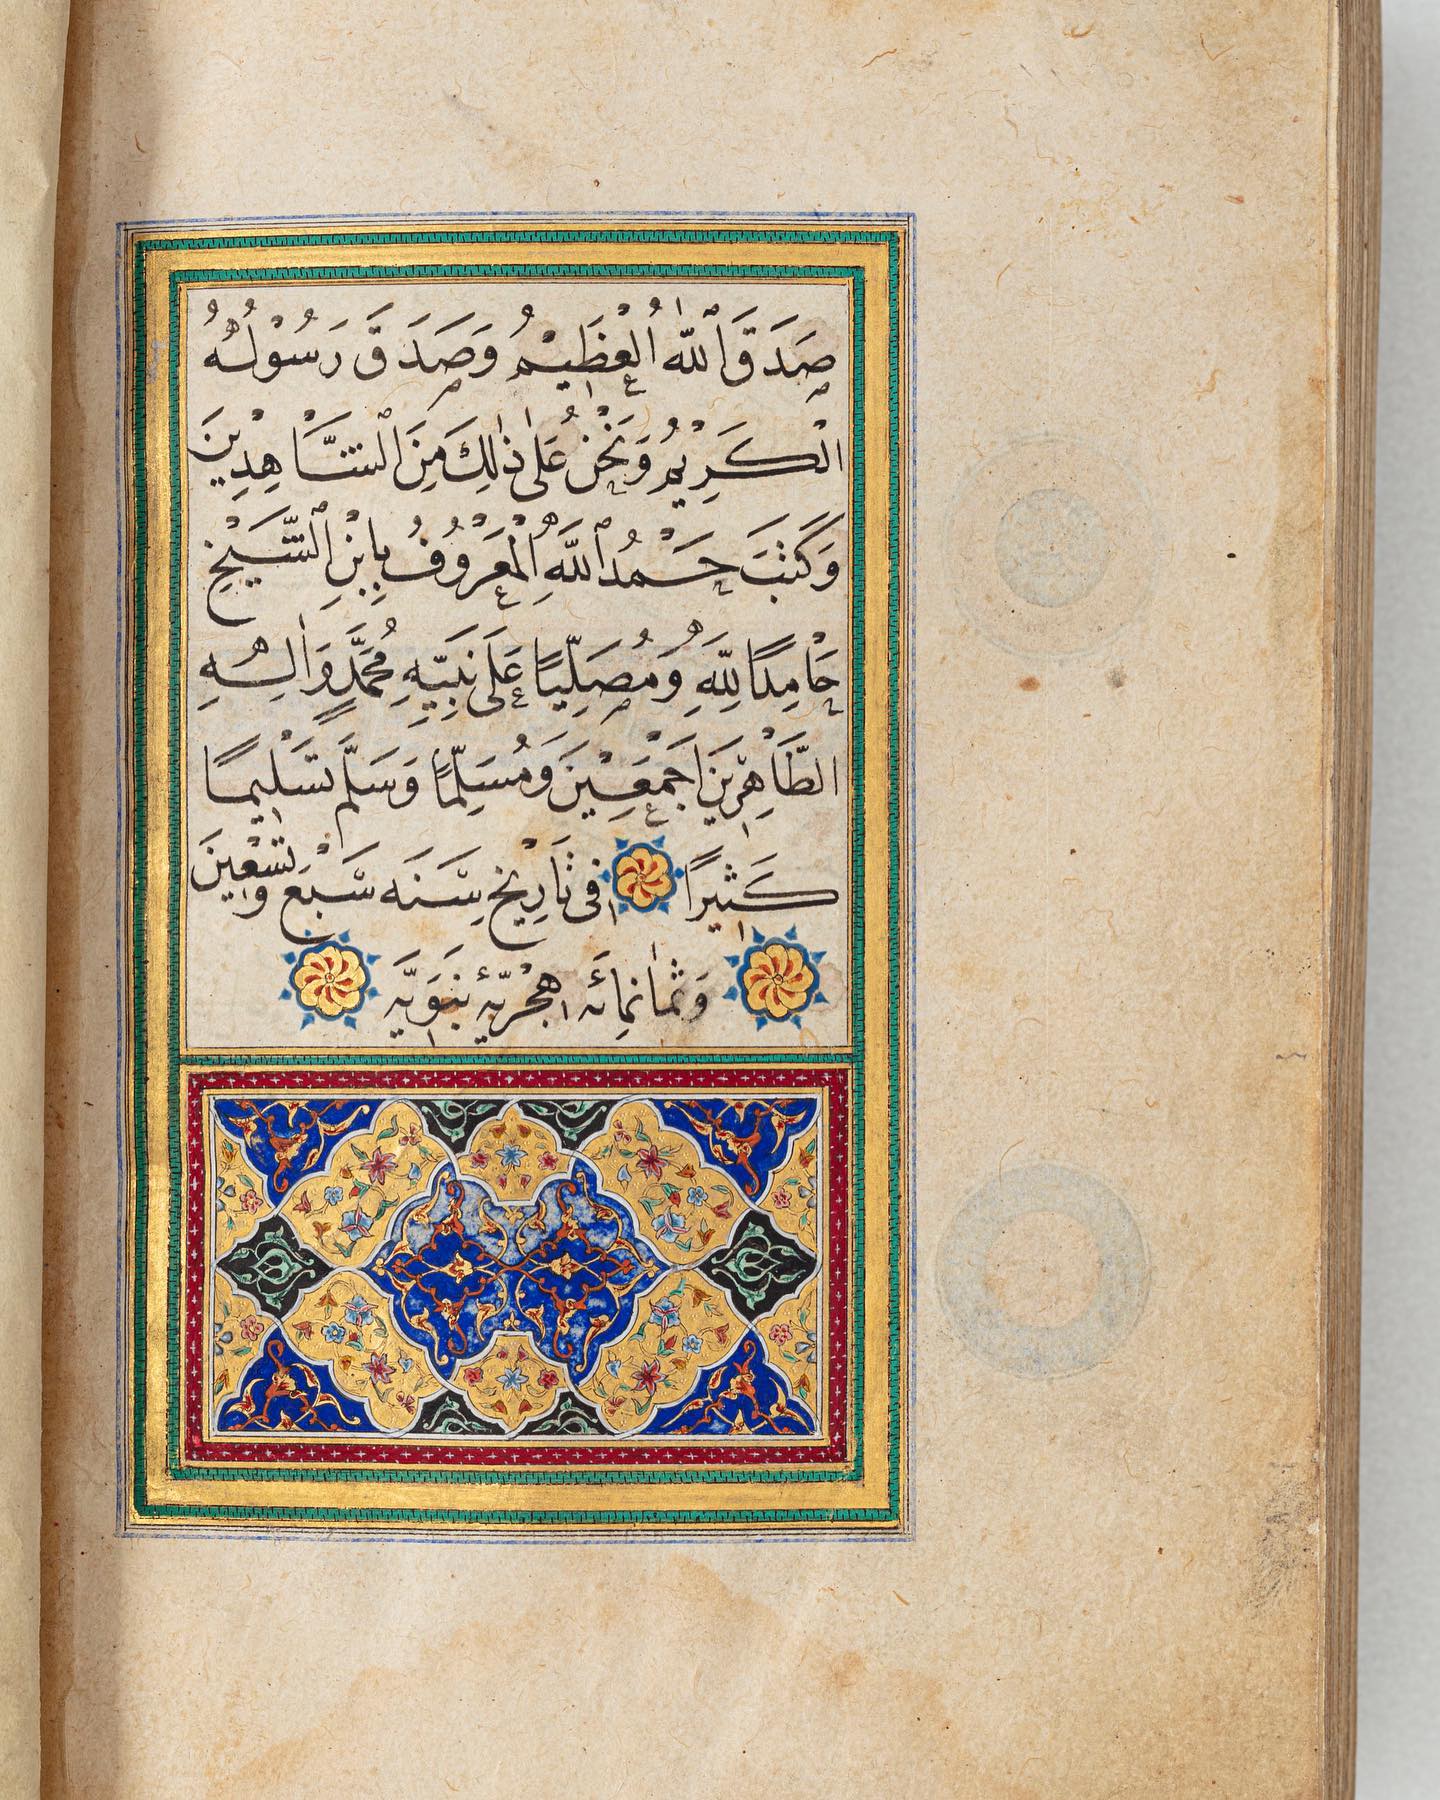 صَدَقَ اللّٰهُ الْعَظِيْمُ وَصَدَقَ رَسُوْلُهُ
الْكَرِيْمُ وَنَحْنُ عَلٰى ذٰلِكَ مِنَ الشَّاهِدِيْنَ
وَكَتَبَ حَمْدُ اللّٰهِ الْمَعْرُوْفُ بِابْنِ الشَّيْخِ
حَامِدًا لِلّٰهِ وَمُصَلِّيًا عَلَى نَبِيِّهِ مُحَمَّدٍ وَاٰلِهِ
الطَّاهِرِيْنَ اَجْمَعِيْنَ وَمُسَلِّمًا وَسَلَّمَ تَسْلِيْمًا
كَثِيْرًا فِى تَارِيْخِ سَنَه سَبْعٍ وَتِسْعِيْنَ
وَثَمَانِمِائَه هِجْرِيَّه نَبَوِيَّه